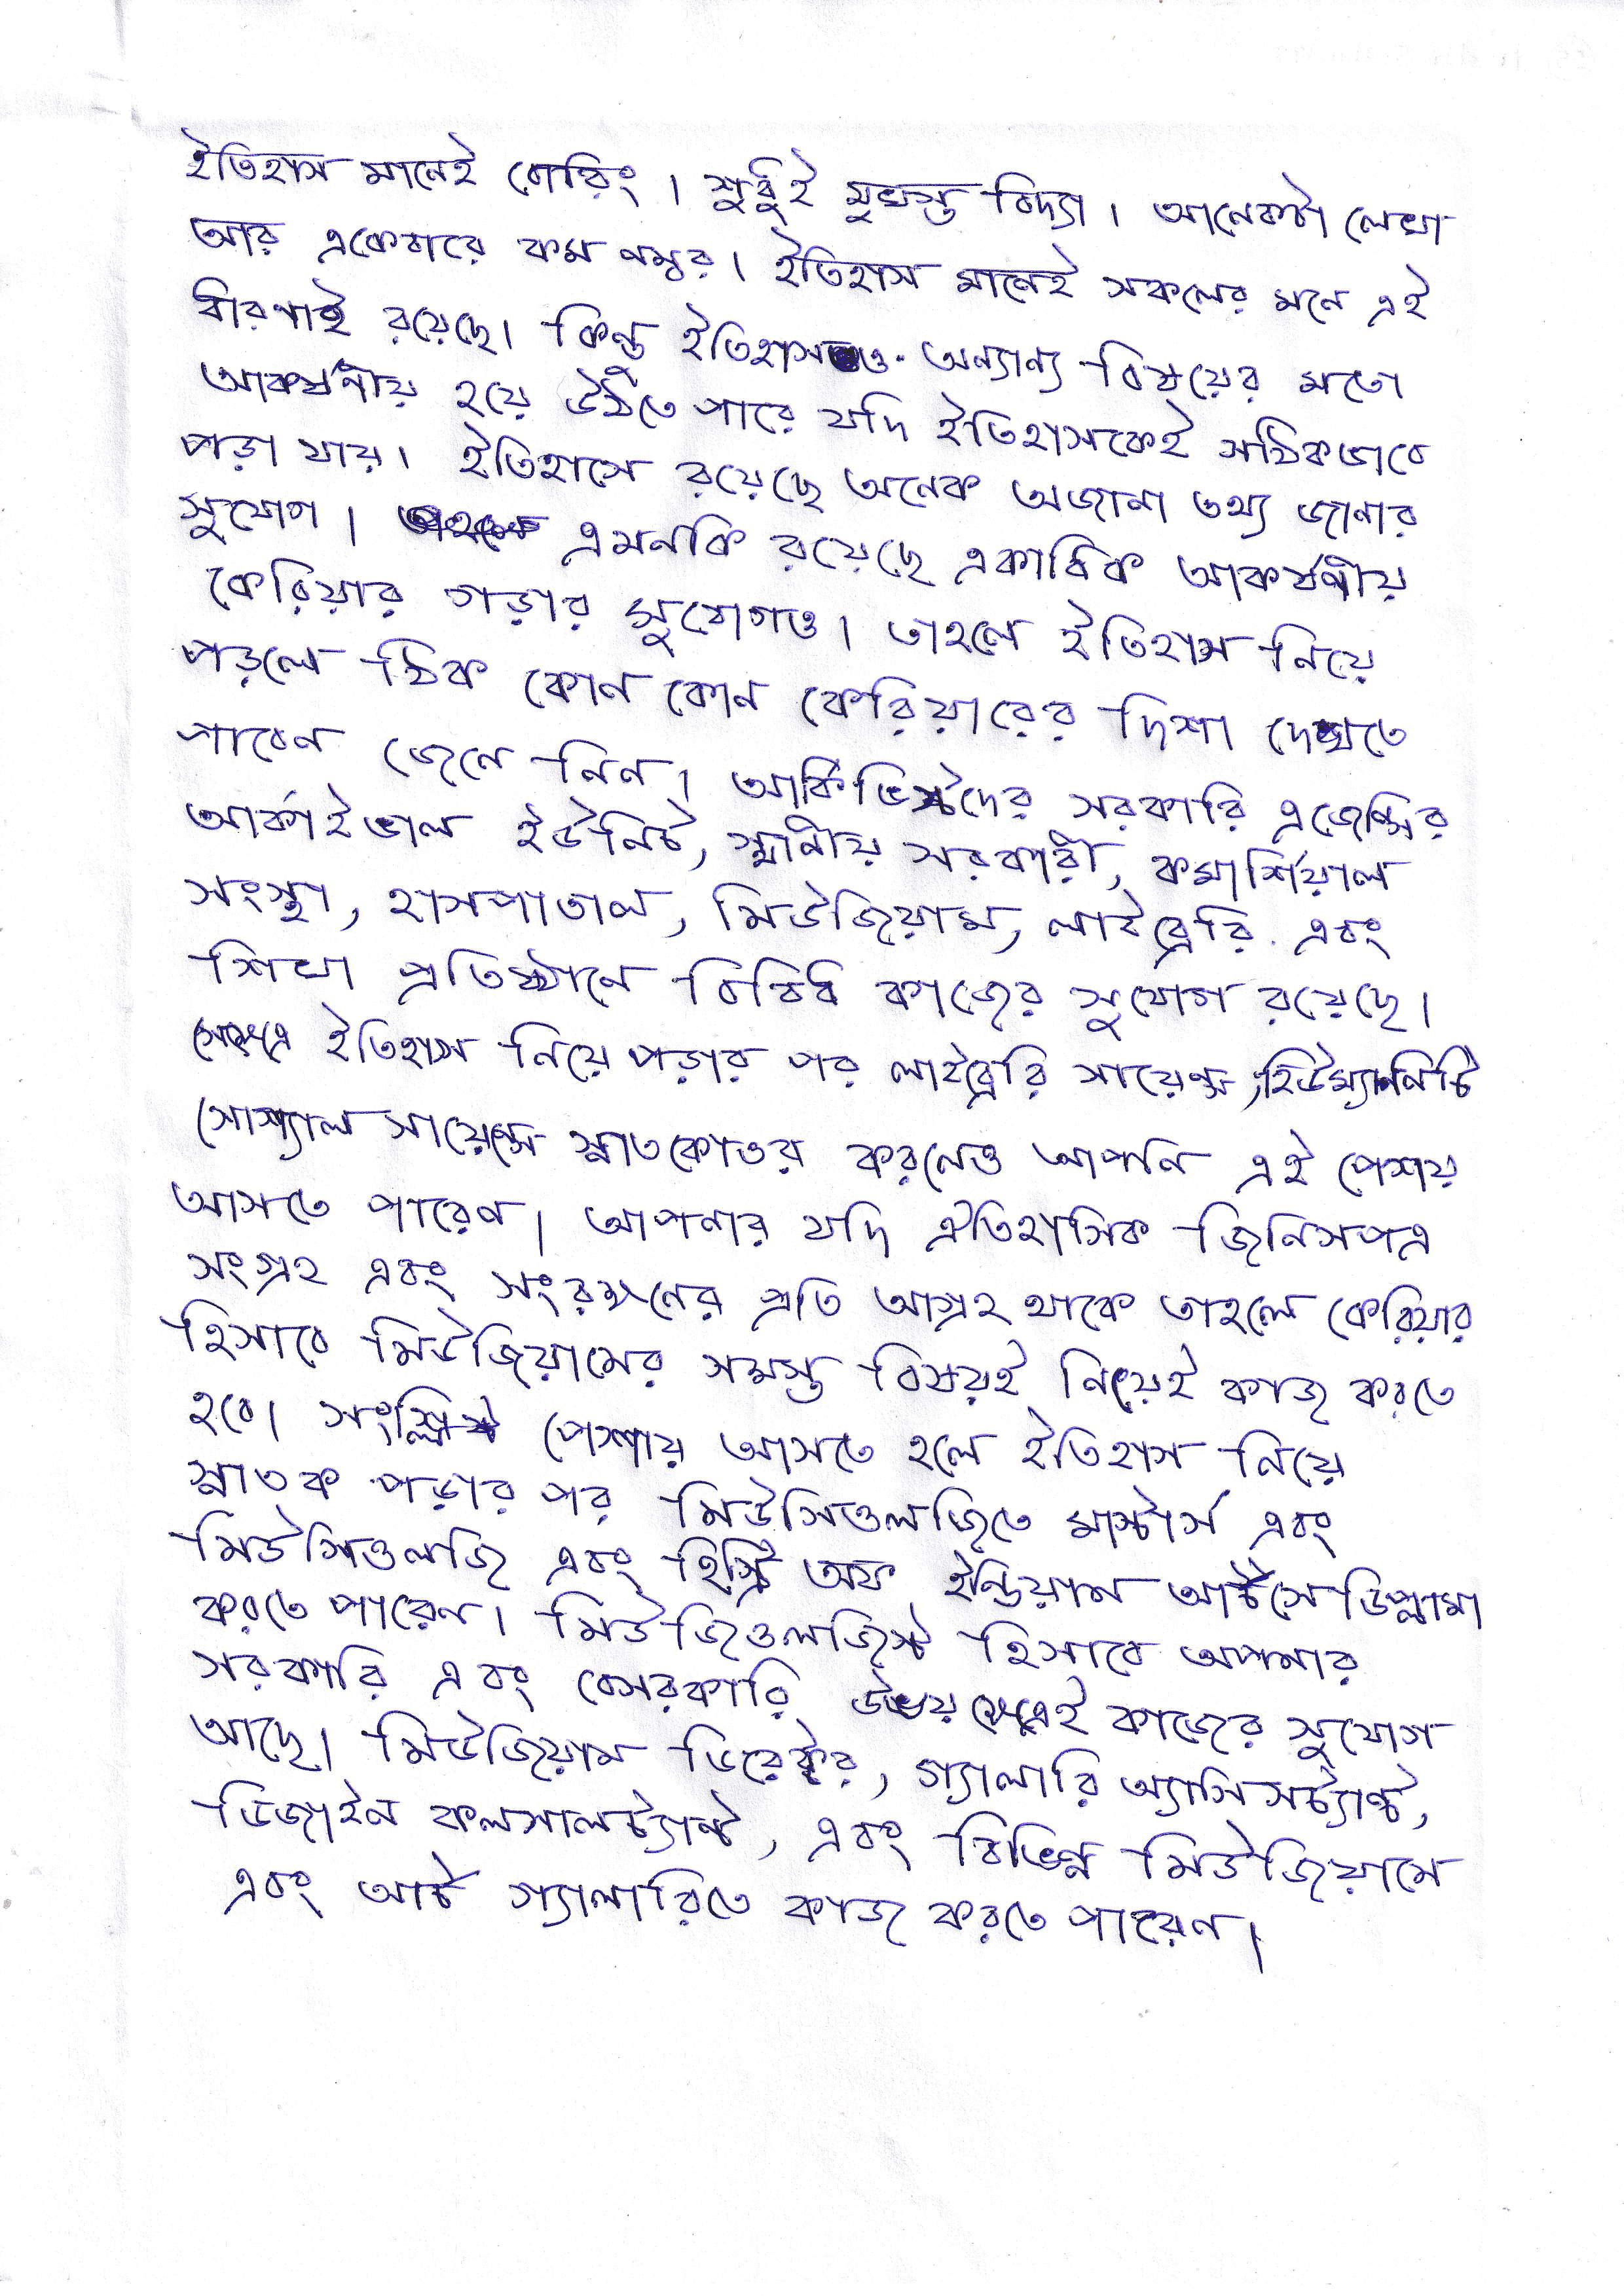 ইতিহাস মানেই বোরিং। শুধুই মুখস্ত বিদ্যা। আনেকটা লেখা
আর একেবারে কম নম্বর। ইতিহাস মানেই সকলের মনে এই
ধারণাই রয়েছে। কিন্তু ইতিহাসও অন্যান্য বিষয়ের মতো
আকর্ষনীয় হয়ে উঠতে পারে যদি ইতিহাসকেই সঠিকভাবে
পড়া যায়। ইতিহাসে রয়েছে অনেক অজানা তথ্য জানার
সুযোগ। এমনকি রয়েছে একাধিক আকর্ষনীয়
কেরিয়ার গড়ার সুযোগও। তাহলে ইতিহাস নিয়ে
পড়লে ঠিক কোন কোন কেরিয়ারের দিশা দেখতে
পাবেন জেনে নিন। আর্কিভিস্টদের সরকারি এজেন্সির
আর্কাইভাল ইউনিট, স্থানীয় সরকারী, কমার্শিয়াল
সংস্থা, হাসপাতাল, মিউজিয়াম, লাইব্রেরি এবং
শিখা প্রতিষ্ঠানে বিবিধ কাজের সুযোগ রয়েছে।
সেক্ষেত্রে ইতিহাস নিয়ে পড়ার পর লাইব্রেরি সায়েন্স, হিউম্যাননিটি
সোশ্যাল সায়েন্সে স্নাতকোত্তর করলেও আপনি এই পেশায়
আসতে পারেন। আপনার যদি ঐতিহাসিক জিনিসপত্র
সংগ্রহ এবং সংরক্ষনের প্রতি আগ্রহ থাকে তাহলে কেরিয়ার
হিসাবে মিউজিয়ামের সমস্ত বিষয়ই নিয়েই কাজ করতে
হবে। সংশ্লিষ্ট পেশায় আসতে হলে ইতিহাস নিয়ে
স্নাতক পড়ার পর মিউসিওলজিতে মাস্টার্স এবং
মিউসিওলজি এবং হিস্ট্রি অফ ইন্ডিয়ান আর্টসে ডিপ্লামা
করতে পারেন। মিউজিওলজিস্ট হিসাবে আপনার
সরকারি এবং বেসরকারি উভয় ক্ষেত্রেই কাজের সুযোগ
আছে। মিউজিয়াম ডিরেক্টর, গ্যালারি অ্যাসিসট্যান্ট,
ডিজাইন কলসালট্যান্ট, এবং বিভিন্ন মিউজিয়ামে
এবং আর্ট গ্যালারিতে কাজ করতে পারেন।